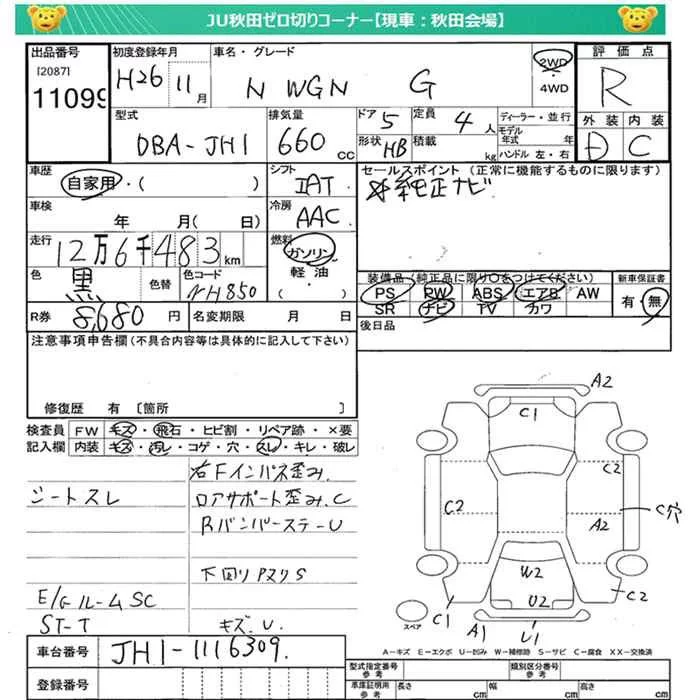 JU秋田ゼロ切りコーナー【現車：秋田会場】
出品番号
[2087]
11099
初度登録年月
H26 11月
車名・グレード
N WGN G
2WD
・
4WD
評価点
R
外装 内装
D C
型式
DBA-JH1
排気量
660 CC
ドア 5
形状 HB
定員 4人
積載 kg
ディーラー・並行
モデル年式 年
ハンドル 左・右
車歴
自家用・( )
シフト
IAT
セールスポイント (正常に機能するものに限ります)
純正ナビ
車検
年 月( 日)
冷房
AAC
走行
12万6千483km
燃料
ガソリン
軽・油
( )
色
黒
色替
色コード
NH850
装備品(純正品に限り○をつけてください)
PS PW ABS エアB AW
SR ナビ TV カワ
新車保証書
有・無
R券 8,680円
名変期限 月 日
後日品
注意事項申告欄(不具合内容等は具体的に記入して下さい)
修復歴 有 [箇所 ]
検査員
記入欄
FW キズ・飛石・ヒビ割・リペア跡・×要
内装 キズ・汚レ・コゲ・穴・スレ・キレ・破レ
右Fインパネ歪み
シートスレ
ロアサポート歪み.C
RバンパーステーU
下回りPヌリS
E/GルームSC
ST-T
キズ.U.
A2
C1
C2
C2
C穴
A2
W2
U2
C2
C1
A1
U1
スペア
A=キズ E=エクボ U=凹み W=補修跡 S=サビ C=腐食 XX=交換済
車台番号
JH1-1116309.
登録番号
型式指定番号
参考
類別区分番号
参考
車庫証明用
参考
長さ cm
幅 cm
高さ cm